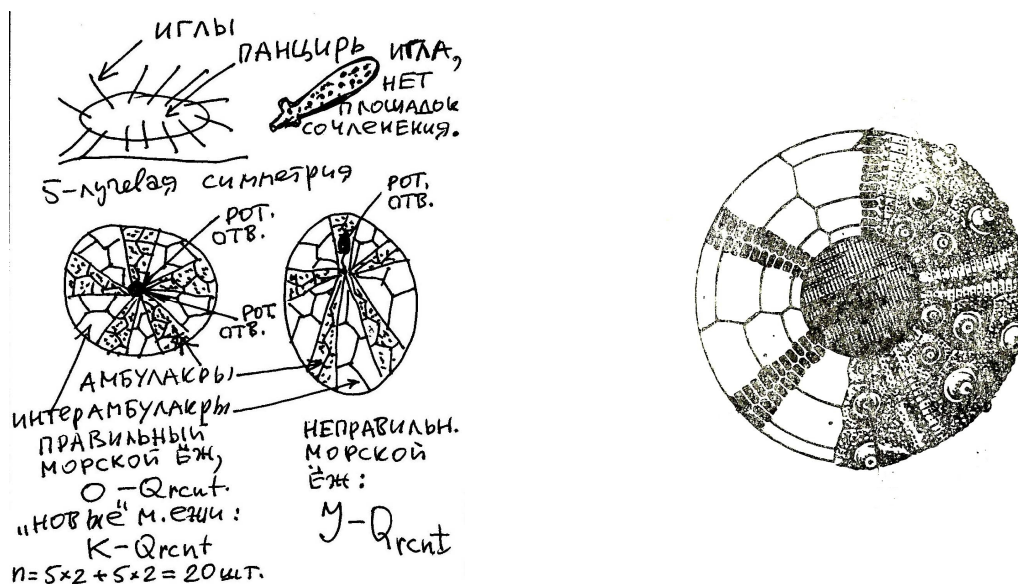 ИГЛЫ
ПАНЦИРЬ
ИГЛА,
НЕТ
ПЛОЩАДОК
СОЧЛЕНЕНИЯ.
5-лучевая симметрия
РОТ.
ОТВ.
РОТ.
ОТВ.
РОТ.
ОТВ.
АМБУЛАКРЫ
ИНТЕРАМБУЛАКРЫ
ПРАВИЛЬНЫЙ
МОРСКОЙ ЁЖ,
O-Qrcnt.
„НОВЫЕ" М. ЕЖИ:
K-Qrcnt
n=5×2+5×2=20шт.
НЕПРАВИЛЬН.
МОРСКОЙ
ЁЖ:
J-Qrcnt